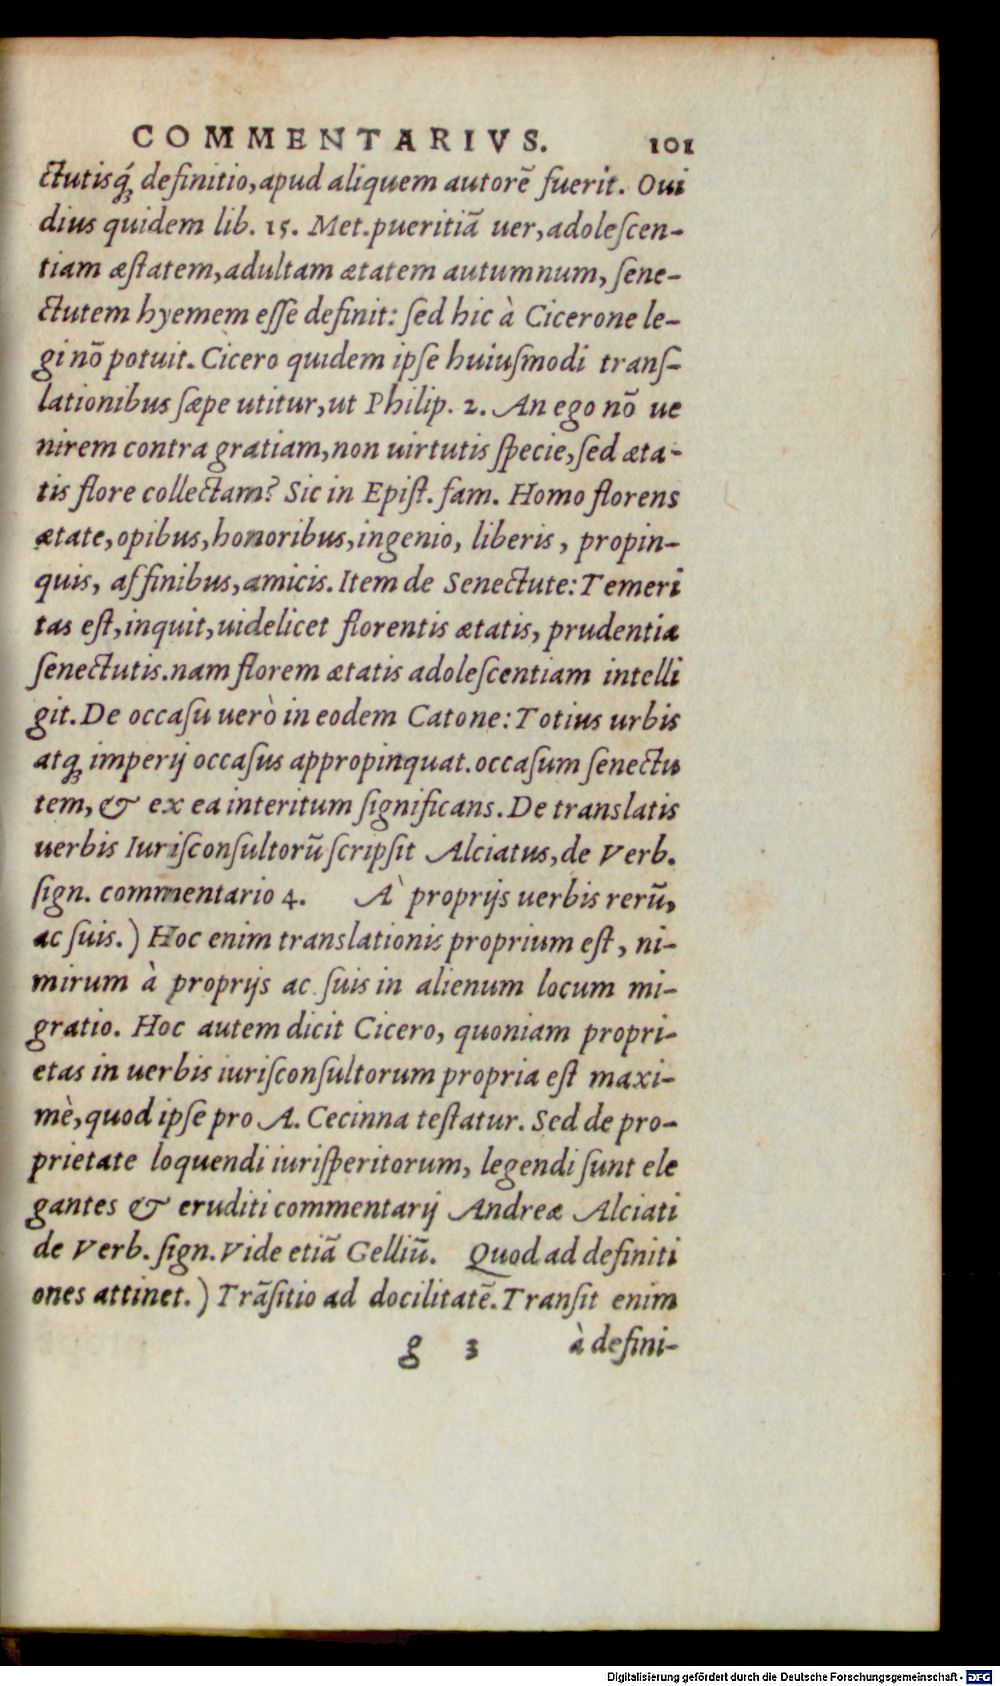 COMMENTARIVS. 101
ctutisq́; definitio, apud aliquem autorẽ fuerit. Oui
dius quidem lib. 15. Met. pueritiã uer, adolescen-
tiam æstatem, adultam ætatem autumnum, sene-
ctutem hyemem esse definit: sed hic à Cicerone le-
gi nõ potuit. Cicero quidem ipse huiusmodi trans-
lationibus sæpe utitur, ut Philip. 2. An ego nõ ue
nirem contra gratiam, non uirtutis specie, sed æta-
tis flore collectam? Sic in Epist. fam. Homo florens
ætate, opibus, honoribus, ingenio, liberis, propin-
quis, affinibus, amicis. Item de Senectute: Temeri
tas est, inquit, uidelicet florentis ætatis, prudentiæ
senectutis. nam florem ætatis adolescentiam intelli
git. De occasu uerò in eodem Catone: Totius urbis
atq; imperij occasus appropinquat. occasum senectu
tem, & ex ea interitum significans. De translatis
uerbis Iurisconsultorũ scripsit Alciatus, de Verb.
sign. commentario 4. À proprijs uerbis rerũ,
ac suis.) Hoc enim translationis proprium est, ni-
mirum à proprijs ac suis in alienum locum mi-
gratio. Hoc autem dicit Cicero, quoniam propri-
etas in uerbis iurisconsultorum propria est maxi-
mè, quod ipse pro A. Cecinna testatur. Sed de pro-
prietate loquendi iurisperitorum, legendi sunt ele
gantes & eruditi commentarij Andreæ Alciati
de Verb. sign. Vide etiã Gelliũ. Quod ad definiti
ones attinet.) Trãsitio ad docilitatẽ. Transit enim
g 3 à defini-
Digitalisierung gefördert durch die Deutsche Forschungsgemeinschaft - DFG